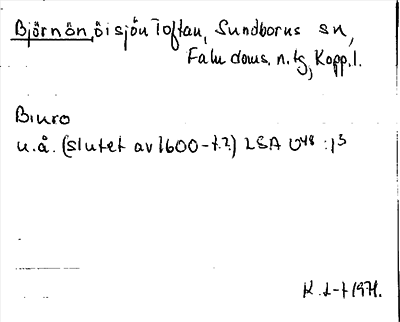 Björnön, ö i sjön Toftan, Sundborns sn,
Falu doms. n. tg, Kopp. l.
Biuro
u.å. (slutet av 1600-t.?) LSA U48 :13
K. L-t 1971.